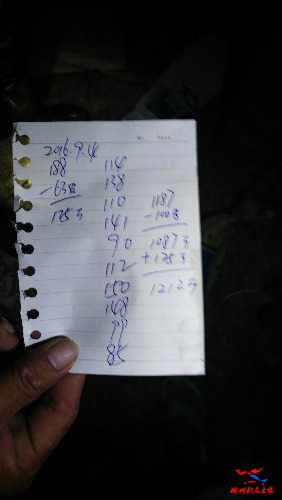 2016.9.4
188
-63斤
125斤
114
138
110
141
90
112
150
148
99
85
1187
-100斤
1087斤
+125斤
1212斤